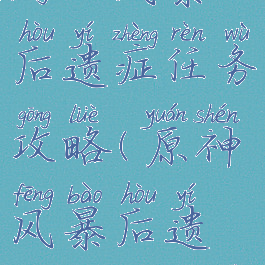 hòu yí zhèng rèn wù
后遗症任务
gōng lüè yuán shén
攻略(原神
fēng bào hòu yí
风暴后遗